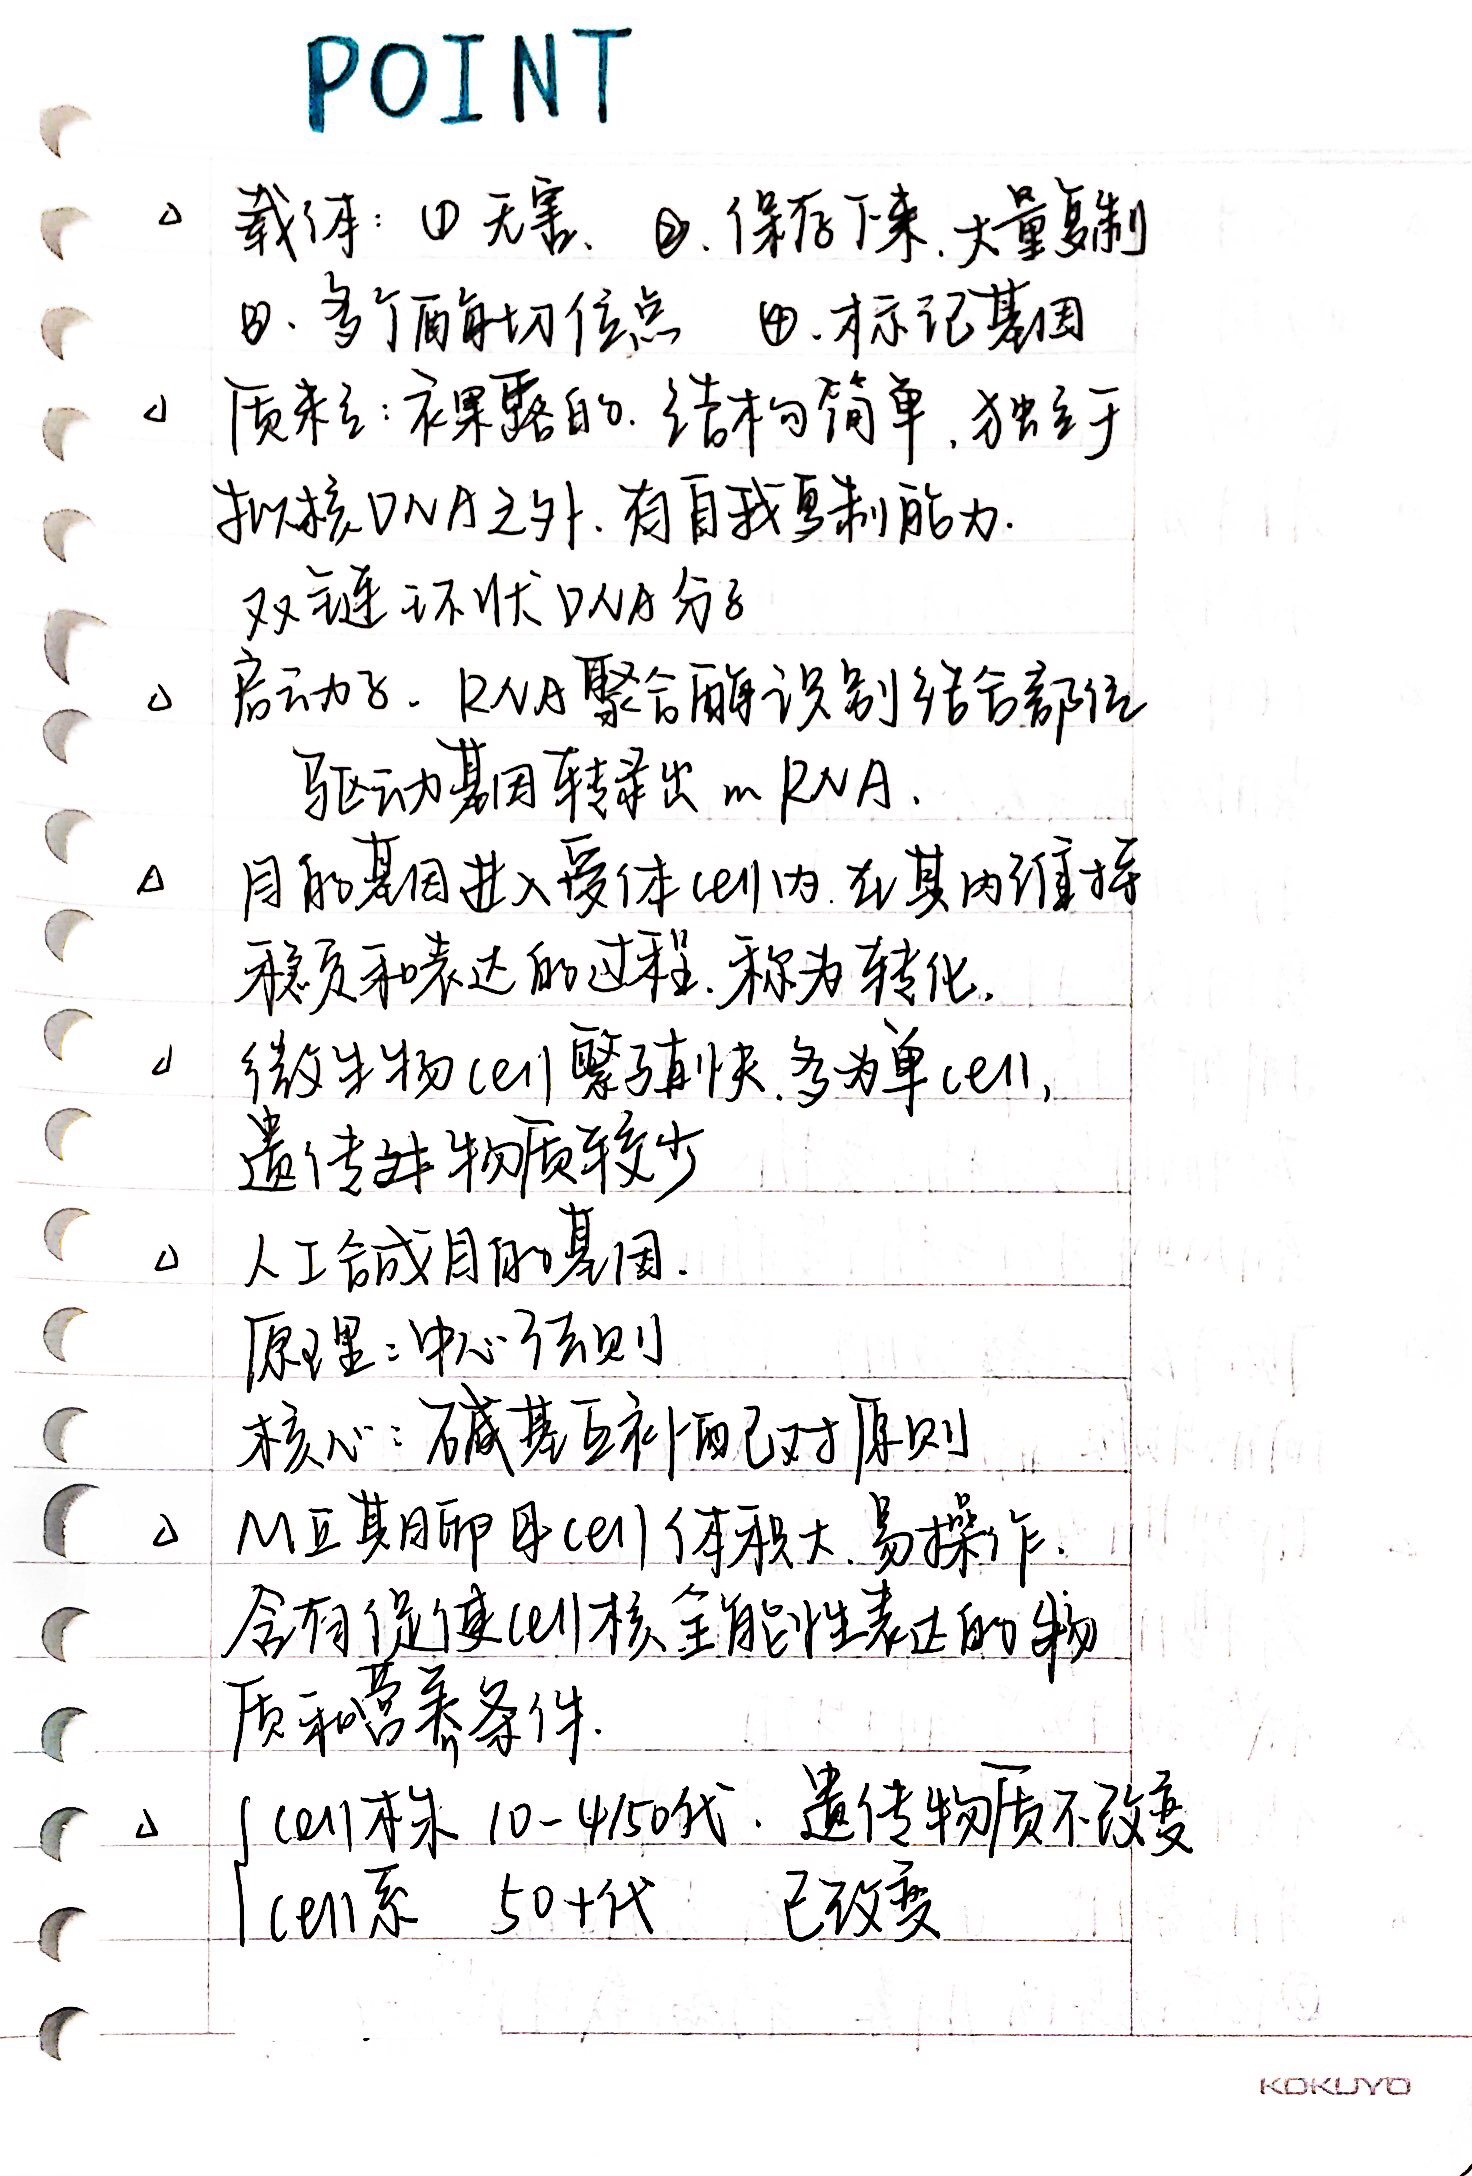 POINT
△ 载体：① 无害、 ②、保存下来、大量复制
③、多个酶切位点 ④、标记基因
△ 质粒：裸露的、结构简单、独立于
拟核DNA之外、有自我复制能力.
双链环状DNA分子
△ 启动子. RNA聚合酶识别结合部位
驱动基因转录出mRNA.
△ 目的基因进入受体cell内. 在其内维持
稳定和表达的过程. 称为转化.
△ 微生物cell繁殖快. 多为单cell,
遗传物质较少
△ 人工合成目的基因.
原理：中心法则
核心：碱基互补配对原则
△ MⅡ期卵母cell体积大、易操作.
含有促使cell核全能性表达的物
质和营养条件.
△ cell株 10-4/50代. 遗传物质不改变
cell系 50+代 已改变
KOKUYO